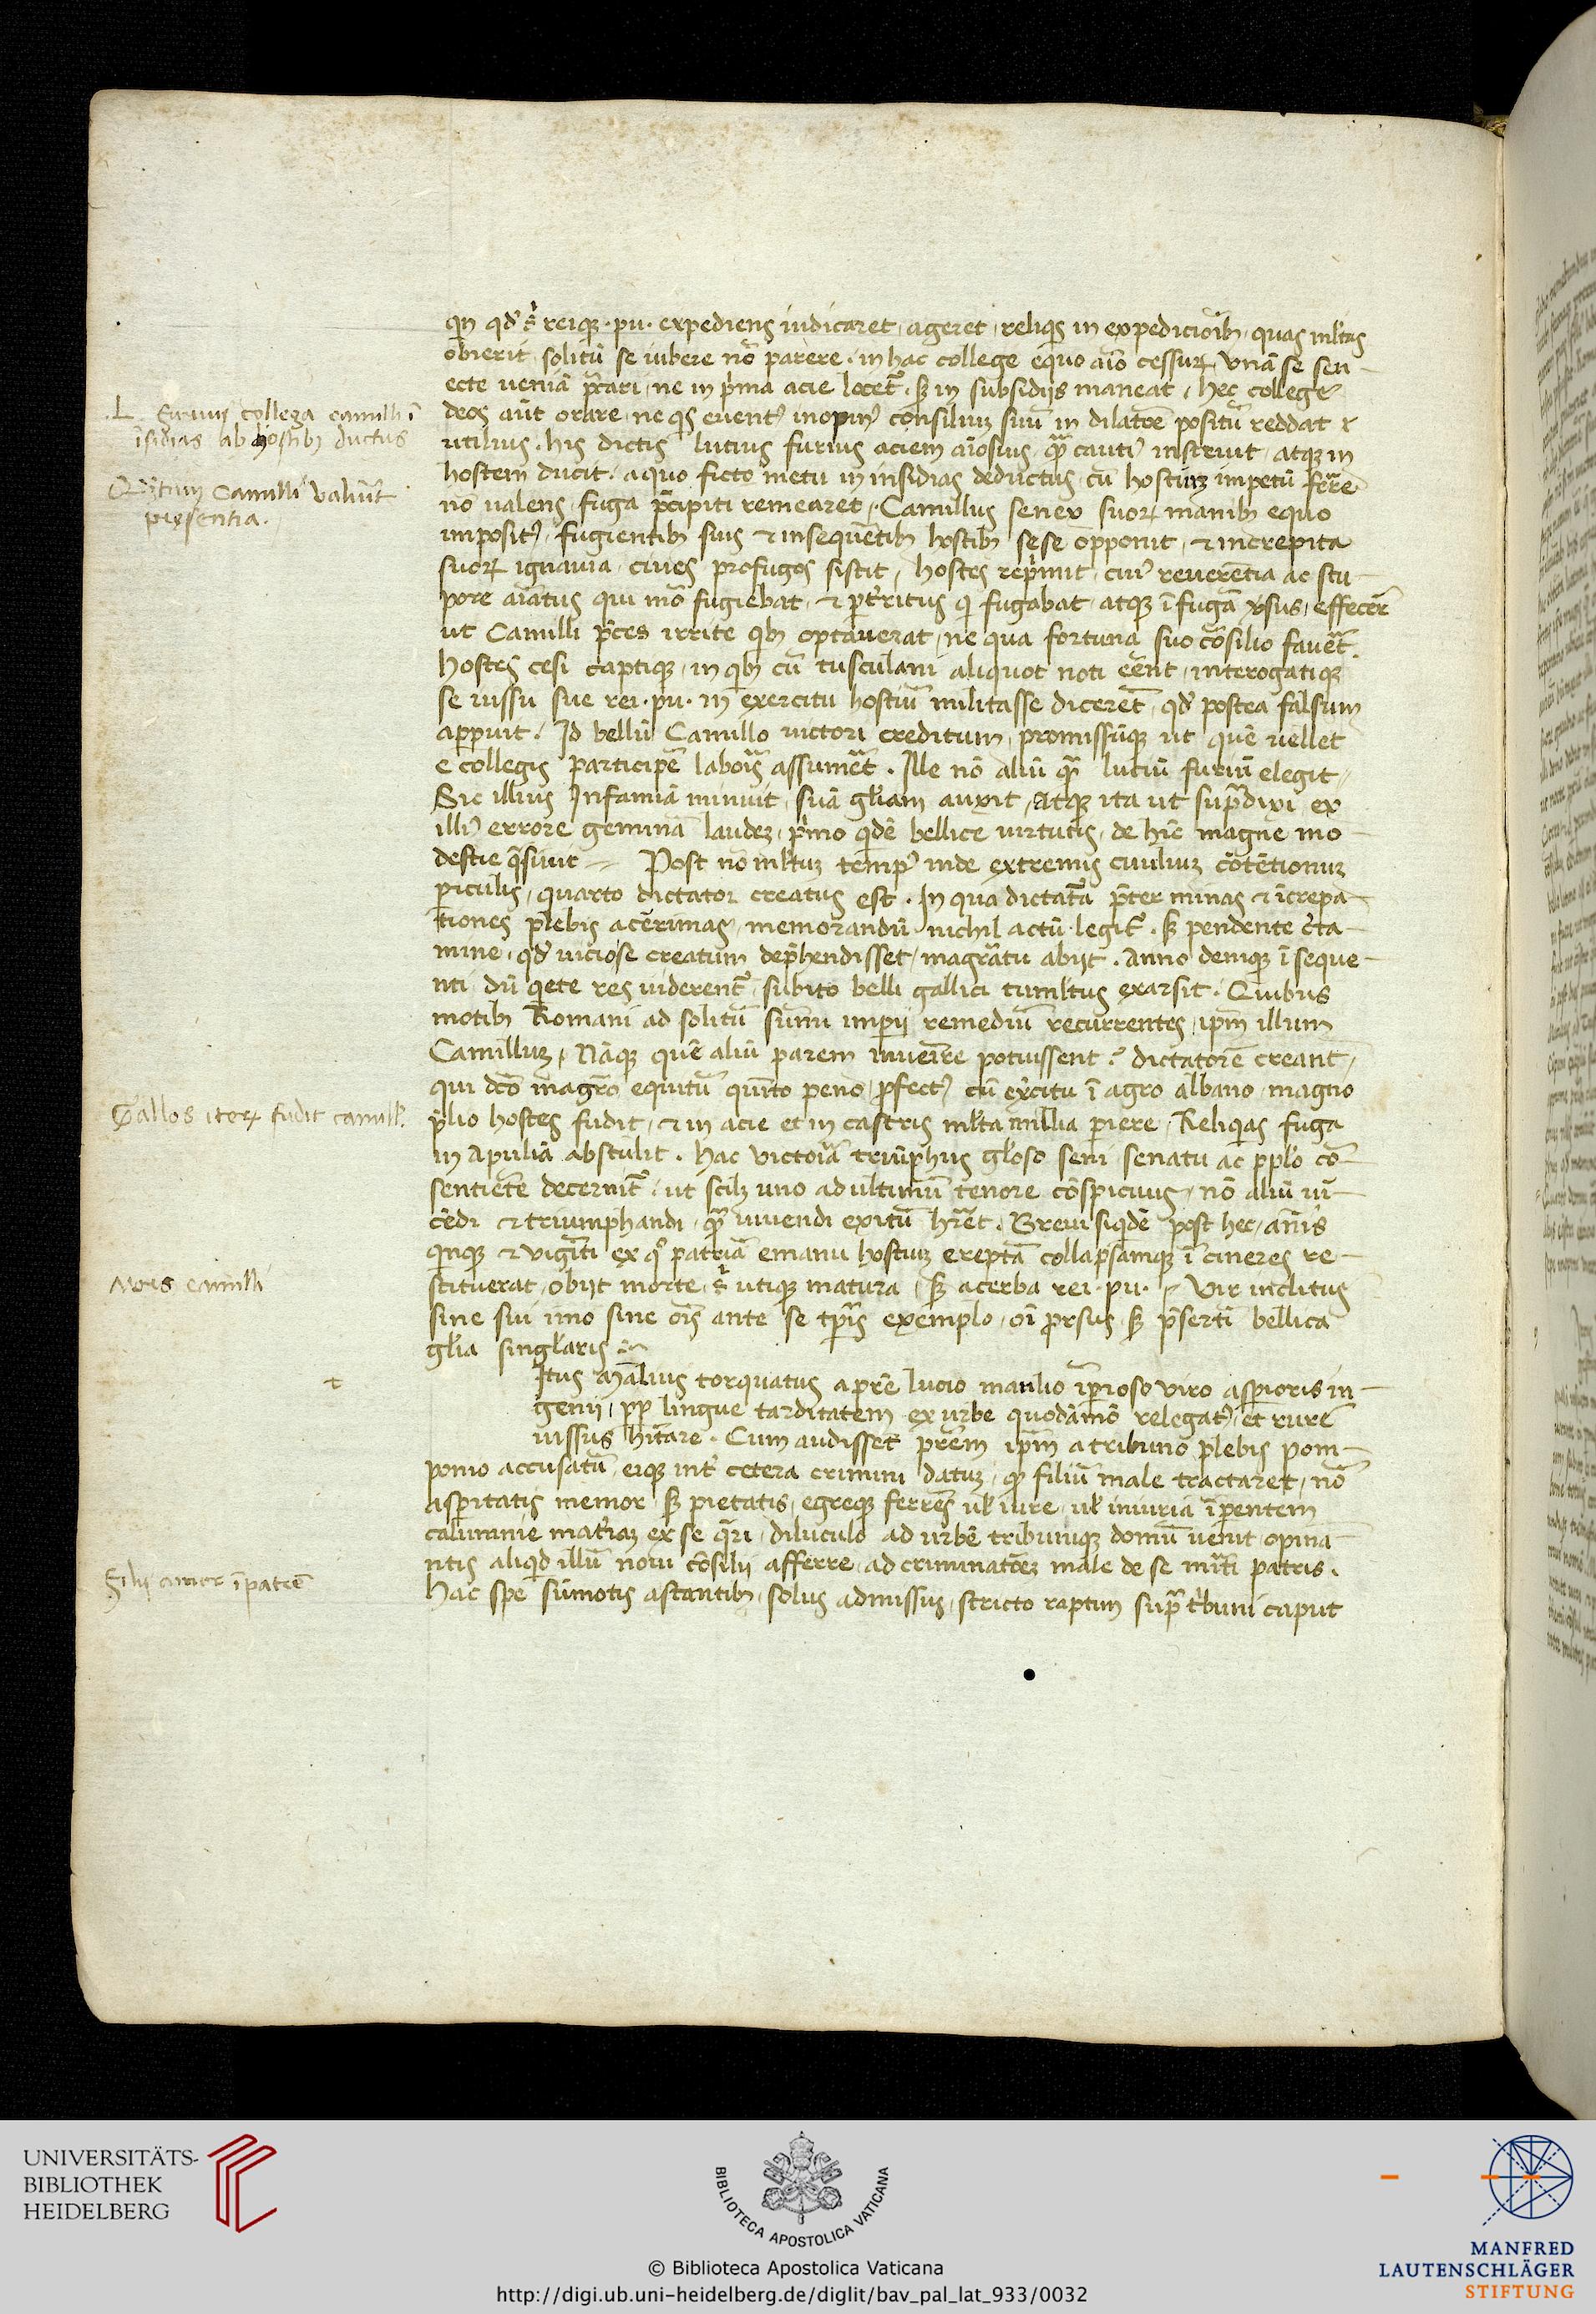 qn qd' s̄ reiq3 · pu · expediens iudicaret, ageret, reliqis in expedicioib3, quas mltas
obierit, solitū se iubere nō parere, in hac college equo aīo cessur, Vnā se sen-
ecte ueniā p̄cari, ne in p'ma acie locet', s3 in subsidijs maneat, hec college
deos aūt orare, ne q's euent9 inopin9 consiliu3 suū in dilatōe positū reddat
utilius. his dictis lucius furius aciem aīosius, q̄ caute instruit, atq3 in
hostem ducit, a quo ficto metu in insidias deductus, cū hostiu3 impetū fr̄re
nō ualens, fuga p̄cipiti remearet, Camillus senex suor manib3 equo
imposit9, fugientib3 suis & insequētib3 hostib3 sese opponit, & increpita
suor ignauia, ciues profugos sistit, hostes rep'mit, cui9 reuerētia ac stu-
pore aīatus qui mō fugiebat, & pert'ritus q' fugabat, atq3 ī fugā v'sus, effecēr
ut Camilli p̄ces irrite q'b3 optauerat, ne qua fortuna suo cōsilio fauēt.
hostes cesi captiq3, in q'b3 cū tusculani aliquot noti eēnt, interogatiq3
se iussu sue rei · pu · in exercitu hostiū militasse dicerēt, qd' postea falsum
apparuit. Id bellū Camillo uictori creditum, promissūq3 ut quē uellet
e collegis participē laboris assumēt. Ille nō aliū q̄ luciū furiū elegit,
Sic illius Infamiā minuit, suā gl'iam auxit, Atq3 ita ut sup̄dixi, ex
illi9 errore geminā laudē3, p'mo q'dē bellice uirtutis, de hīc magne mo-
destie q̄siuit — Post nō mltu3 temp9 inde extremis ciuiliu3 cōtētionu3
p̄iculis, quarto dictator creatus est. In qua dictat'a p̄ter minas & īcrepa-
tiones plebis acērimas, memorandū nichil actū legit', s3 pendente c'ta-
mine, qd' uiciose creatum dep̄hendisset, magr̄atu abijt. Anno deniq3 ī seque-
nti dū q'ete res uiderent', subito belli gallici tumltus exarsit. Quibus
motib3 Romani ad solitū sūmi imp̄ij remediū recurrentes, ip̄m illum
Camillu3, Nāq3 quē aliū parem inuenire potuissent? dictatorē creant,
qui dc̄o magr̄o equitū quīto peno, p̄fect9 cū ex'citu ī agro albano, magno
p̄lio hostes fudit, & in acie et in castris mlta millia periere, Reliq'as fuga
in Apuliā abstulit. Hac victoria triūphus gl'oso seni senatu ac ppl'o cō-
sentiente decernit', ut scil3 uno ad ultimū tenore cōspicuus, nō aliū uī-
cēdi & triumphandi, q̄ uiuendi exitū hr̄et. Breui siq'dē post hec, annis
q'nq3 & viginti ex q° patriā e manu hostiu3 ereptā collapsamq3 ī cineres re-
stituerat, obijt morte, s̄ utiq3 matura, s3 acerba rei · pu · Vir inclitus
sine sui imo sine oīs ante se tp̄is exemplo, oī prorsus, s3 p̄sertī bellica
gl'ia singl'aris
Itus Mālius torquatus a pr̄e lucio manlio īperioso viro asperioris in-
genij, pp lingue tarditatem ex urbe quodāmō relegat9, et rure
iussus h̄itare. Cum audisset pr̄em ip̄m a tribuno plebis pom-
ponio accusatū, eiq3 int' cetera crimini datu3, q' filiū male tractaret, nō
asperitatis memor, s3 pietatis, egreq3 ferrēs ul' iure, ul' iniuria īpentem
calumnie mat'ia3 ex se q̄ri, diluculo ad urbē tribuniq3 domū uenit, opina
ntis aliq'd illū noui cōsilii afferre, ad criminatōe3 male de se mr̄ti patris.
Hac spe sūmotis astantib3, solus admissus, stricto raptim sup̄ t'buni caput
L. Furius collega camilli ī
īsidias ab hostib3 ductus
Q̄tum Camilli valuit
presentia.
Gallos iter fudit camill'
Mors camilli
t
Filij amor ī patrē
UNIVERSITÄTS-
BIBLIOTHEK
HEIDELBERG
BIBLIOTECA APOSTOLICA VATICANA
© Biblioteca Apostolica Vaticana
http://digi.ub.uni-heidelberg.de/diglit/bav_pal_lat_933/0032
MANFRED
LAUTENSCHLÄGER
STIFTUNG